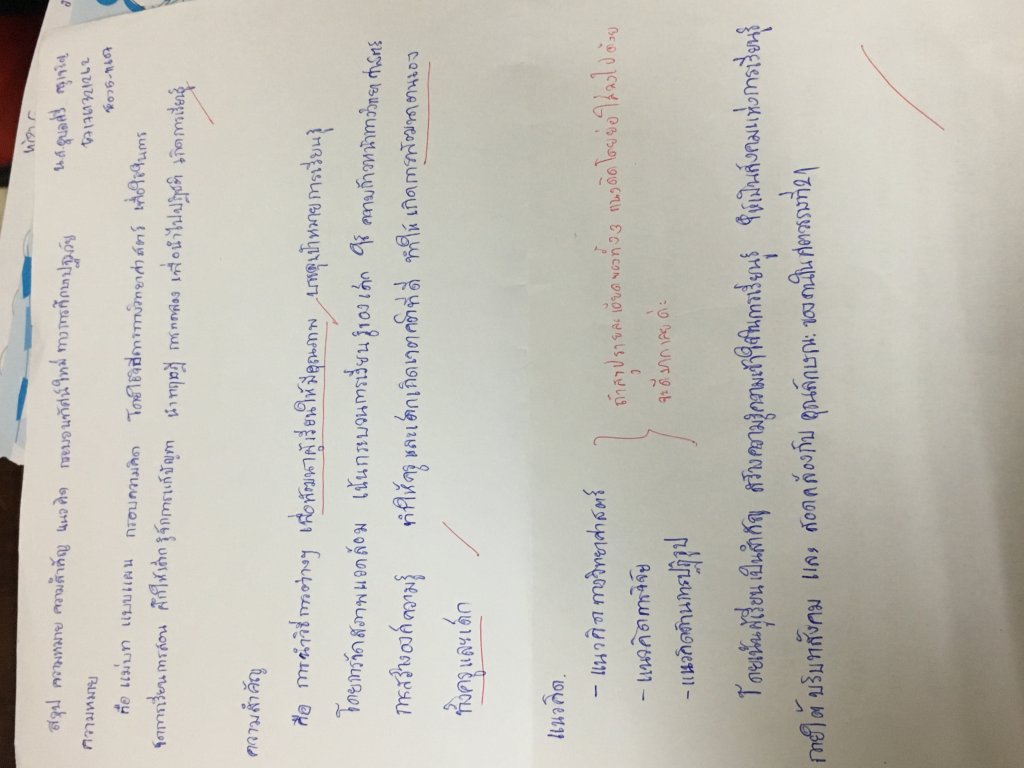 สรุป ความหมาย ความสำคัญ แนวคิด กระบวนทัศน์ใหม่ทางการศึกษาปฐมวัย
ความหมาย
คือ แม่บท แบบแผน กรอบความคิด โดยใช้วิธีการทางวิทยาศาสตร์ เพื่อใช้ในการ
จัดการเรียนการสอน ฝึกให้เด็กรู้จักการแก้ปัญหา นำทฤษฎี การทดลอง เพื่อนำไปปฏิบัติ เกิดการเรียนรู้
ความสำคัญ
คือ การนำวิธีการต่างๆ เพื่อพัฒนาผู้เรียนให้มีคุณภาพ บรรลุเป้าหมายการเรียนรู้
โดยการจัดสภาพแวดล้อม เน้นกระบวนการเรียนรู้ของเด็ก ใช้ ความก้าวหน้าทางวิทยาศาสตร์
การสร้างองค์ความรู้ ทำให้ครูและเด็กเกิดเจตคติที่ดี ทำให้เกิดการพัฒนาตนเอง
ทั้งครูและเด็ก
แนวคิด.
- แนวคิดทางวิทยาศาสตร์
- แนวคิดการวิจัย
- แนวคิดด้านการปฏิรูป
ถ้าสรุปรายละเอียดของ แนวคิดโดยย่อใส่ลงไปด้วย
จะดีมากเลยค่ะ
โดยเน้นผู้เรียนเป็นสำคัญ สร้างความรู้ความเข้าใจในการเรียนรู้ ให้เป็นสังคมแห่งการเรียนรู้
ภายใต้ บริบทสังคม และ สอดคล้องกับ คุณลักษณะของคนในศตวรรษที่ 21